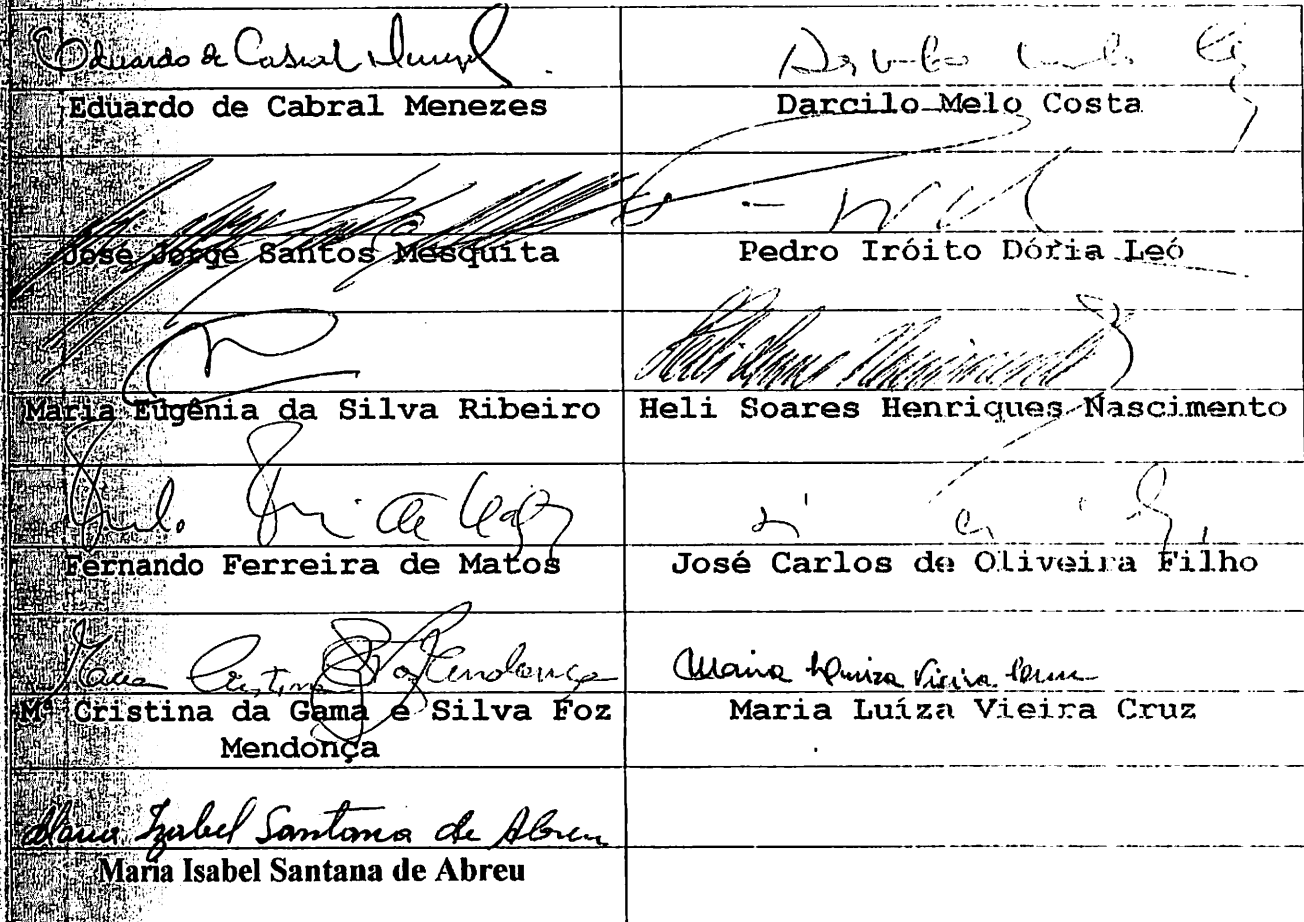 Eduardo de Cabral Menezes
Eduardo de Cabral Menezes
Darcilo Melo Costa
José Jorge Santos Mesquita
Pedro Iróito Dória Leó
Maria Eugênia da Silva Ribeiro
Heli Soares Henriques Nascimento
Fernando Ferreira de Matos
José Carlos de Oliveira Filho
Maria Cristina Foz Mendonça
Mª Cristina da Gama e Silva Foz
Mendonça
Maria Luiza Vieira Cruz
Maria Luíza Vieira Cruz
Maria Izabel Santana de Abreu
Maria Isabel Santana de Abreu